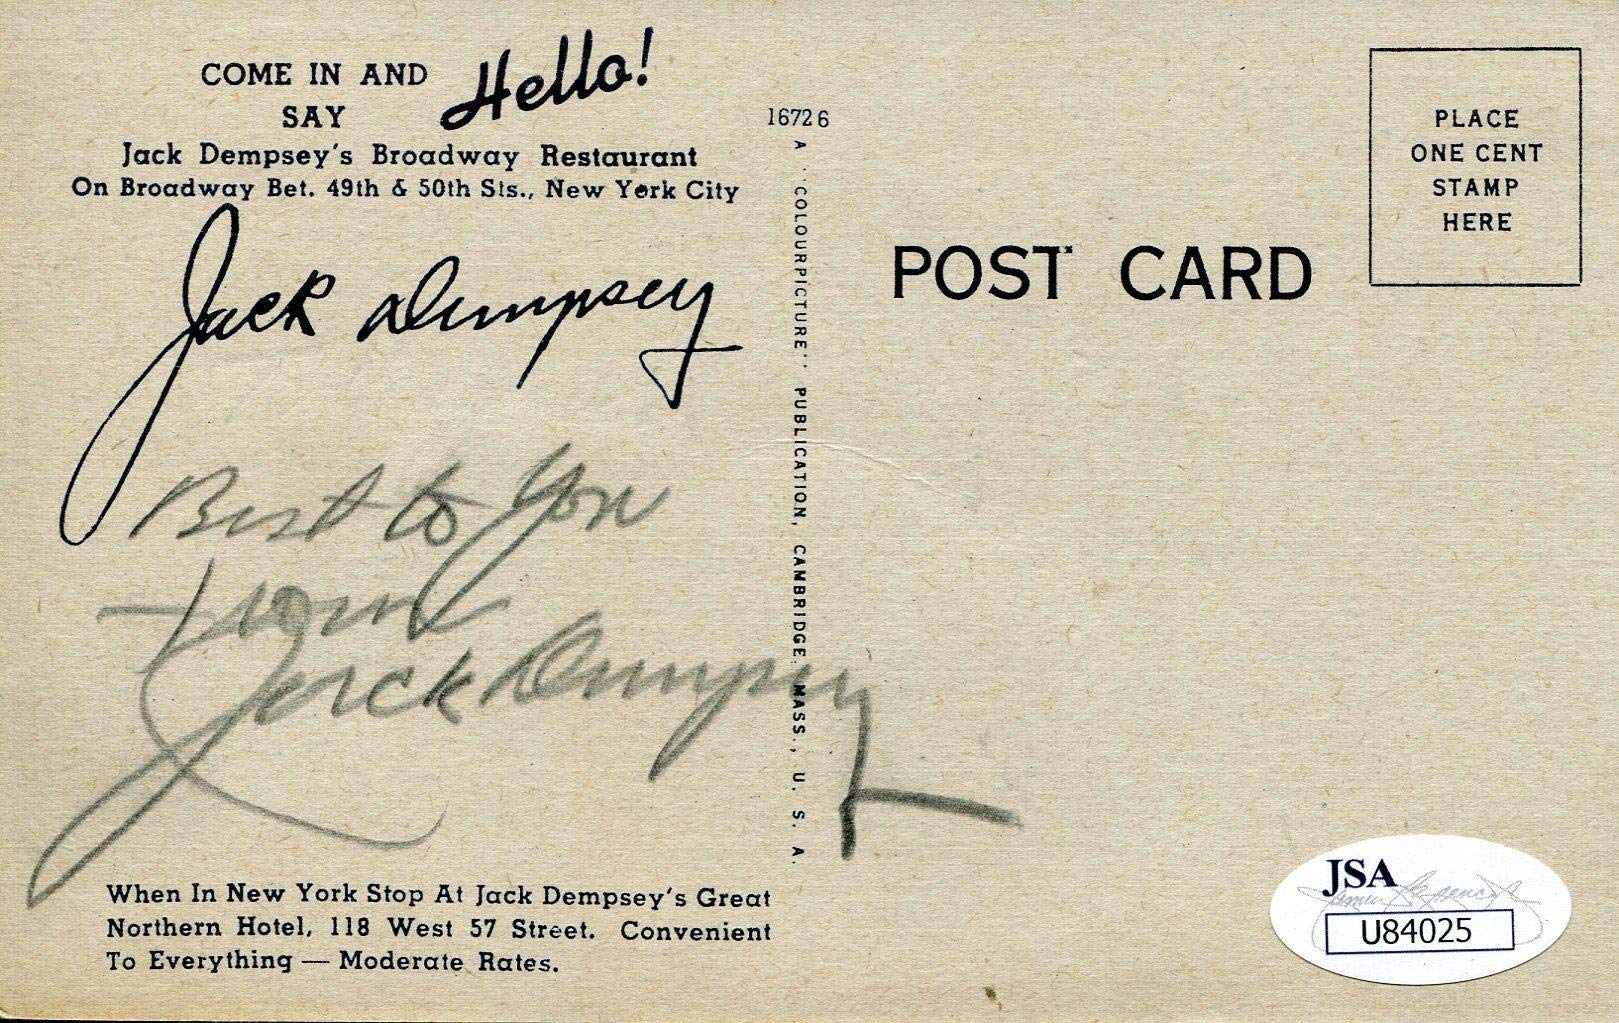 COME IN AND
SAY Hello!
Jack Dempsey's Broadway Restaurant
On Broadway Bet. 49th & 50th Sts., New York City
Jack Dempsey
Best to You
From
Jack Dempsey
When In New York Stop At Jack Dempsey's Great
Northern Hotel, 118 West 57 Street. Convenient
To Everything — Moderate Rates.
16726
A 'COLOURPICTURE' PUBLICATION, CAMBRIDGE, MASS., U. S. A.
POST CARD
PLACE
ONE CENT
STAMP
HERE
JSA
James Spence Jr
U84025